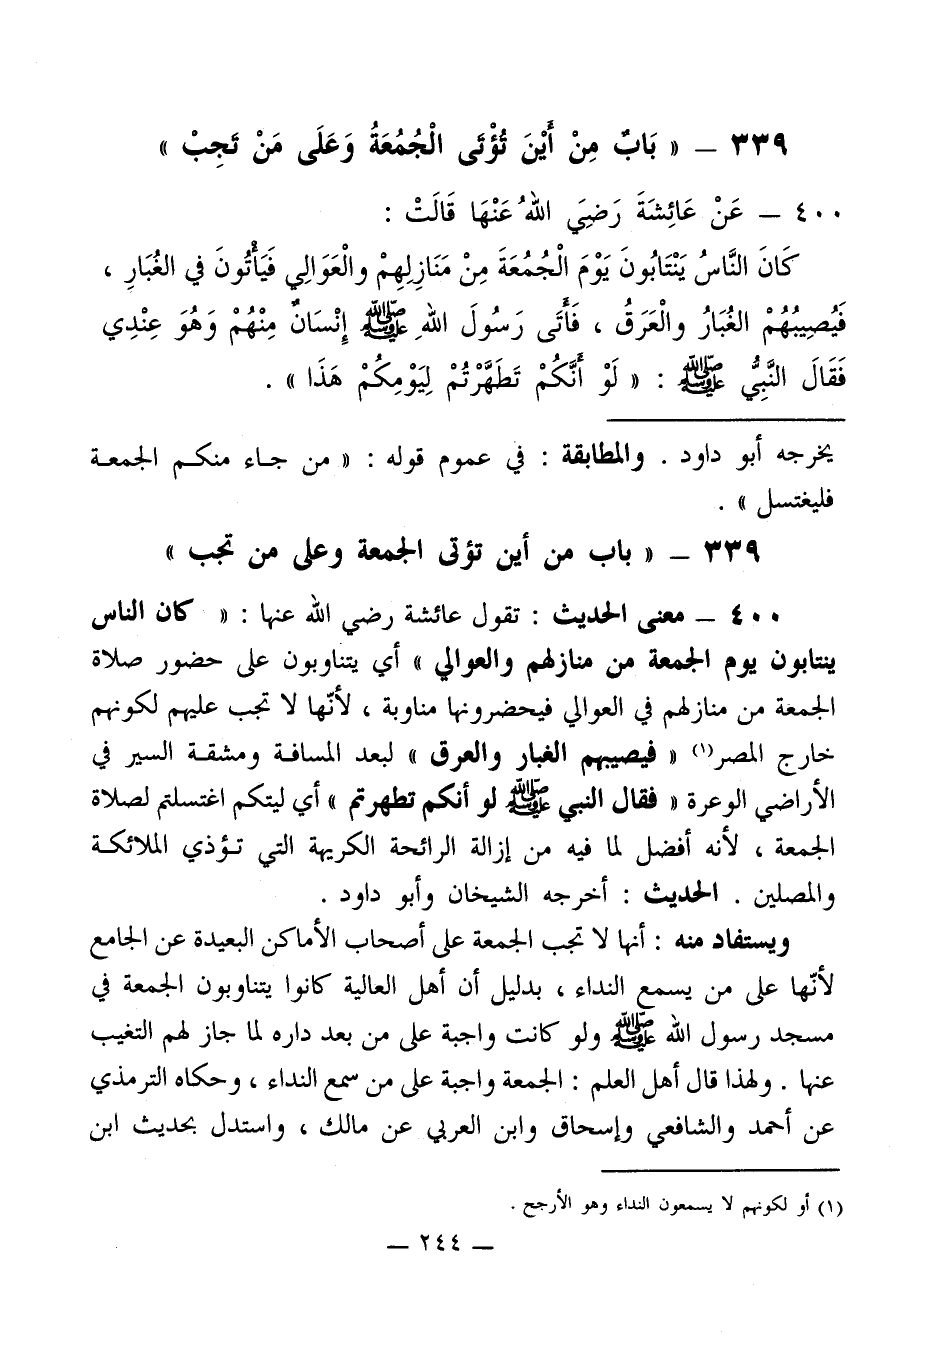 ٣٣٩ – « بَابٌ مِنْ أَيْنَ تُؤْتَى الْجُمُعَةُ وَعَلَى مَنْ تَجِبْ »
٤٠٠ – عَنْ عَائِشَةَ رَضِيَ اللهُ عَنْهَا قَالَتْ :
كَانَ النَّاسُ يَنْتَابُونَ يَوْمَ الْجُمُعَةَ مِنْ مَنَازِلِهِمْ والْعَوَالِي فَيَأْتُونَ في الغُبَارِ ،
فَيُصِيبُهُمْ الغُبَارُ والْعَرَقُ ، فَأَتَى رَسُولَ اللهِ ﷺ إنْسَانٌ مِنْهُمْ وَهُوَ عِنْدِي
فَقَالَ النَّبِيُّ ﷺ : « لَوْ أَنَّكُمْ تَطَهَّرْتُمْ لِيَوْمِكُمْ هَذَا » .
يخرجه أبو داود . والمطابقة : في عموم قوله : « من جاء منكم الجمعة
فليغتسل » .
٣٣٩ – « باب من أين تؤتى الجمعة وعلى من تجب »
٤٠٠ – معنى الحديث : تقول عائشة رضي الله عنها : « كان الناس
ينتابون يوم الجمعة من منازلهم والعوالي » أي يتناوبون على حضور صلاة
الجمعة من منازلهم في العوالي فيحضرونها مناوبة ، لأنّها لا تجب عليهم لكونهم
خارج المصر(١) « فيصيبهم الغبار والعرق » لبعد المسافة ومشقة السير في
الأراضي الوعرة « فقال النبي ﷺ لو أنكم تطهرتم » أي ليتكم اغتسلتم لصلاة
الجمعة ، لأنه أفضل لما فيه من إزالة الرائحة الكريهة التي تؤذي الملائكة
والمصلين . الحديث : أخرجه الشيخان وأبو داود .
ويستفاد منه : أنها لا تجب الجمعة على أصحاب الأماكن البعيدة عن الجامع
لأنّها على من يسمع النداء ، بدليل أن أهل العالية كانوا يتناوبون الجمعة في
مسجد رسول الله ﷺ ولو كانت واجبة على من بعد داره لما جاز لهم التغيب
عنها . ولهذا قال أهل العلم : الجمعة واجبة على من سمع النداء ، وحكاه الترمذي
عن أحمد والشافعي وإسحاق وابن العربي عن مالك ، واستدل بحديث ابن
(١) أو لكونهم لا يسمعون النداء وهو الأرجح .
– ٢٤٤ –